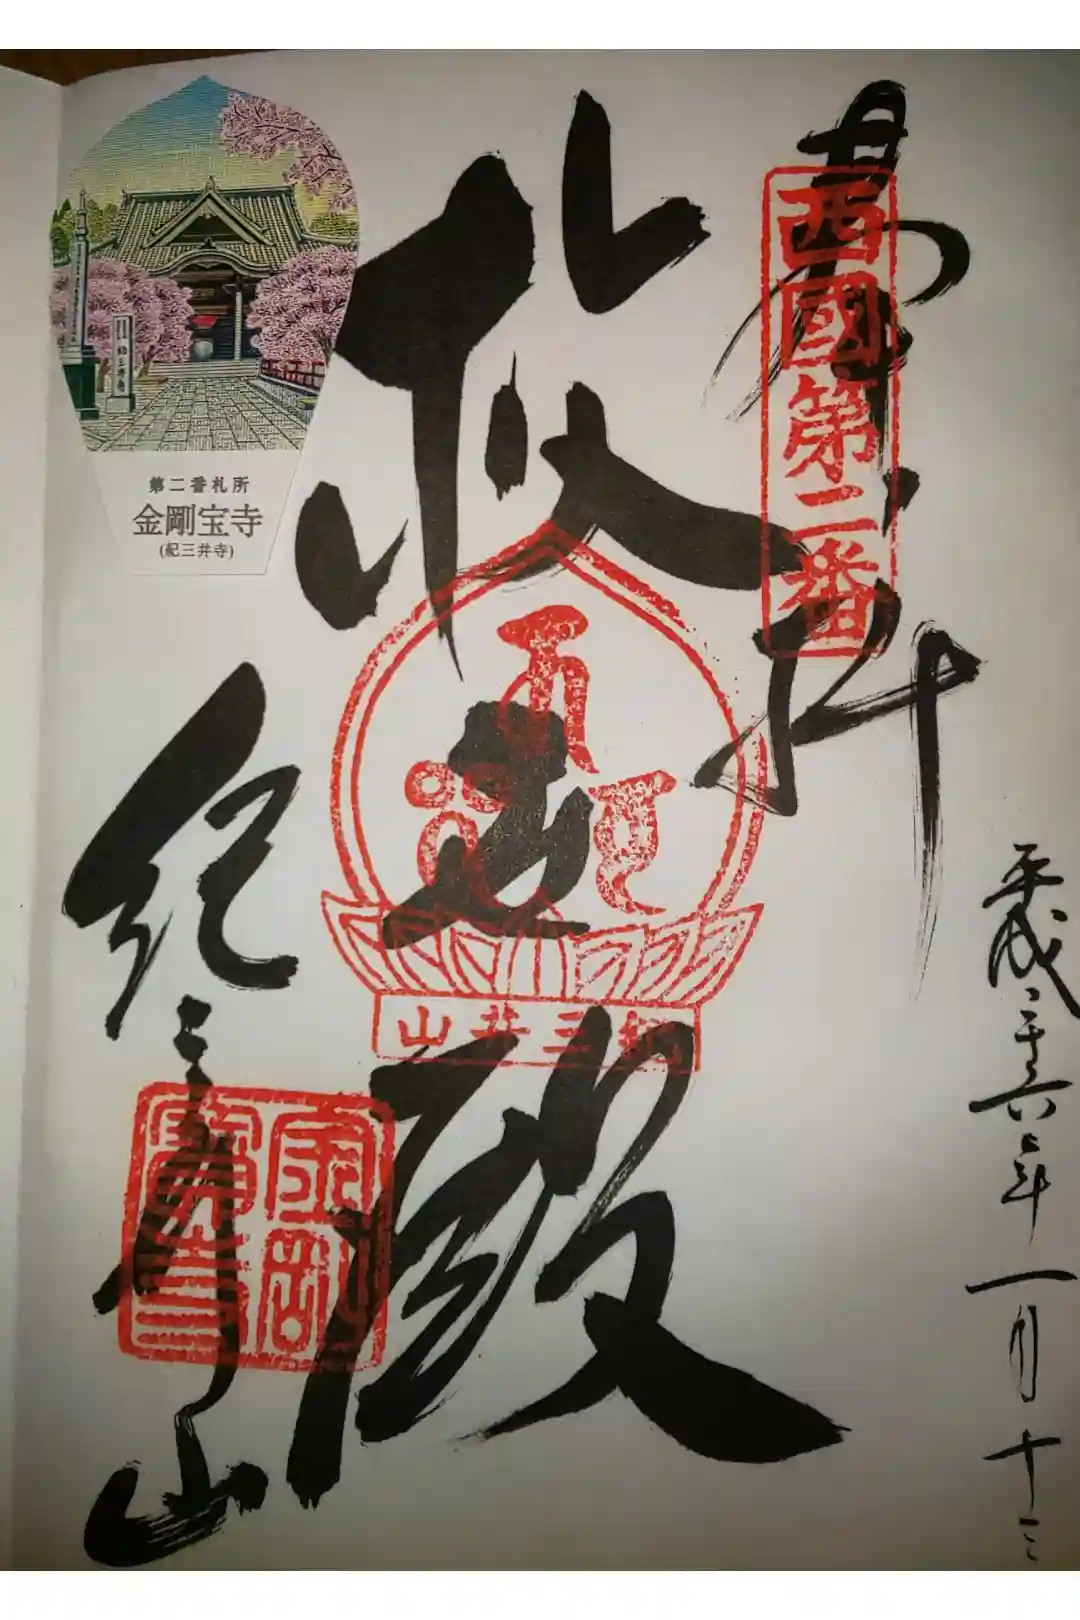 奉拝
西國第二番
平成二十六年一月十三
救世殿
紀三井山
紀三井山
金剛寳寺
第二番札所
金剛宝寺
(紀三井寺)